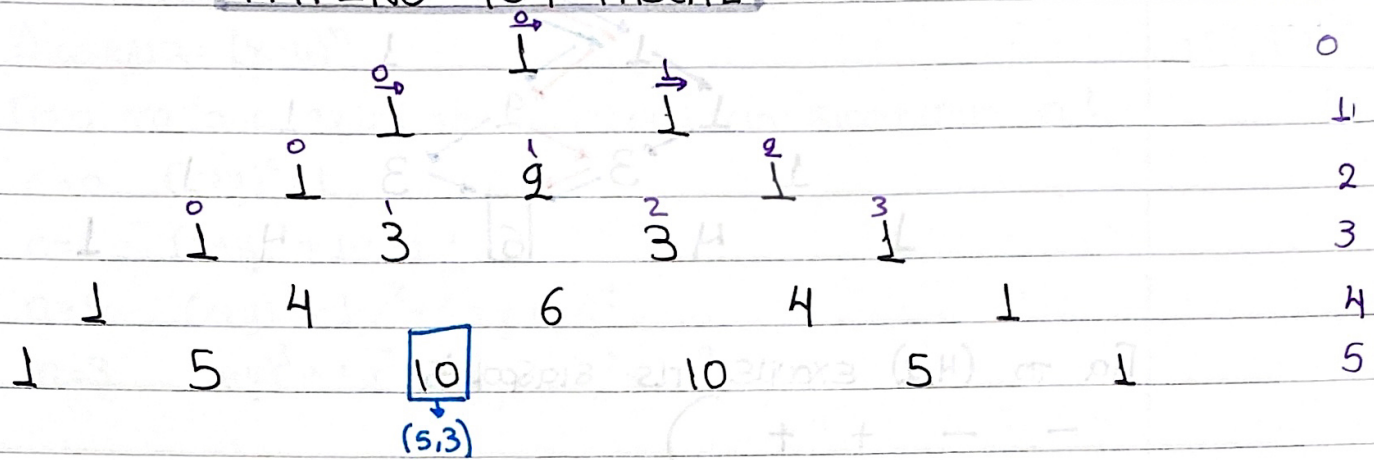 0
1 0
0 1
1 1 1
0 1 2
1 2 1 2
0 1 2 3
1 3 3 1 3
1 4 6 4 1 4
1 5 10 10 5 1 5
(5,3)